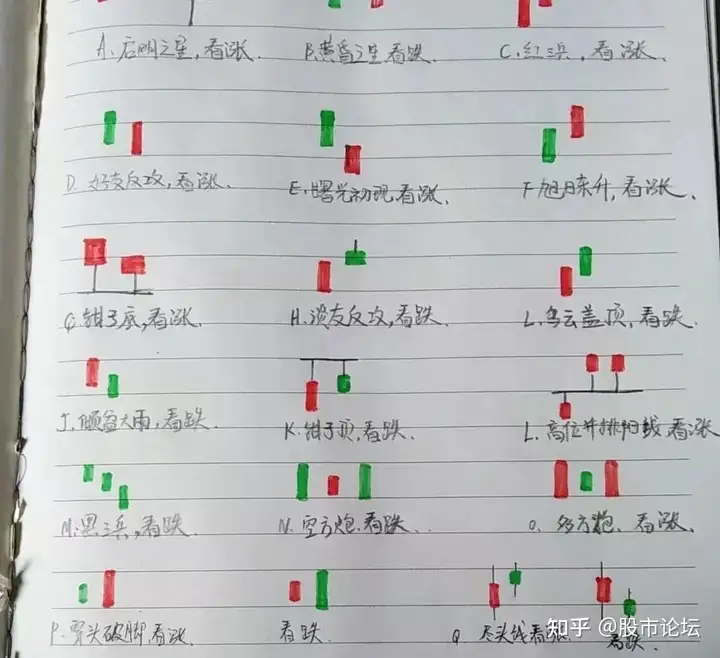 A、启明之星,看涨、 B、黄昏之星 看跌. C、红三兵, 看涨、
D、好友反攻,看涨、 E、曙光初现,看涨、 F、旭日东升,看涨、
G、钳子底,看涨、 H、淡友反攻,看跌、 L、乌云盖顶,看跌、
J、倾盆大雨,看跌、 K、钳子顶,看跌、 L、高位并排阳线,看涨
M、黑三兵,看跌、 N、空方炮、看跌、 O、多方炮、看涨、
P、穿头破脚,看涨、 看跌、 Q 尽头线 看涨 看跌
知乎 @股市论坛